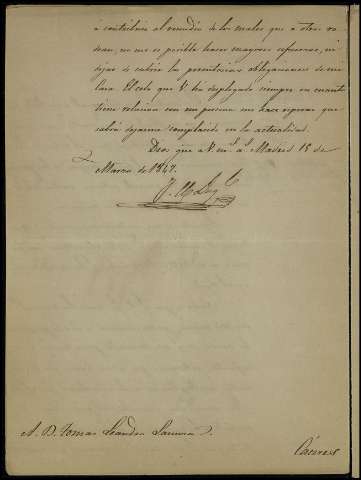 á contribuir al remedio de los males que á otros ro
dean, no me es posible hacer mayores esfuerzos, ni
dejar de cubrir las perentorias obligaciones de mi
casa. El celo que V. ha desplegado siempre en cuanto
tiene relacion con mi persona me hace esperar que
sabrá dejarme complacido en la actualidad.
Dios gue á V. ms. as. Madrid 15 de
Marzo de 1847.
A. D. Tomas Leandro
Cáceres